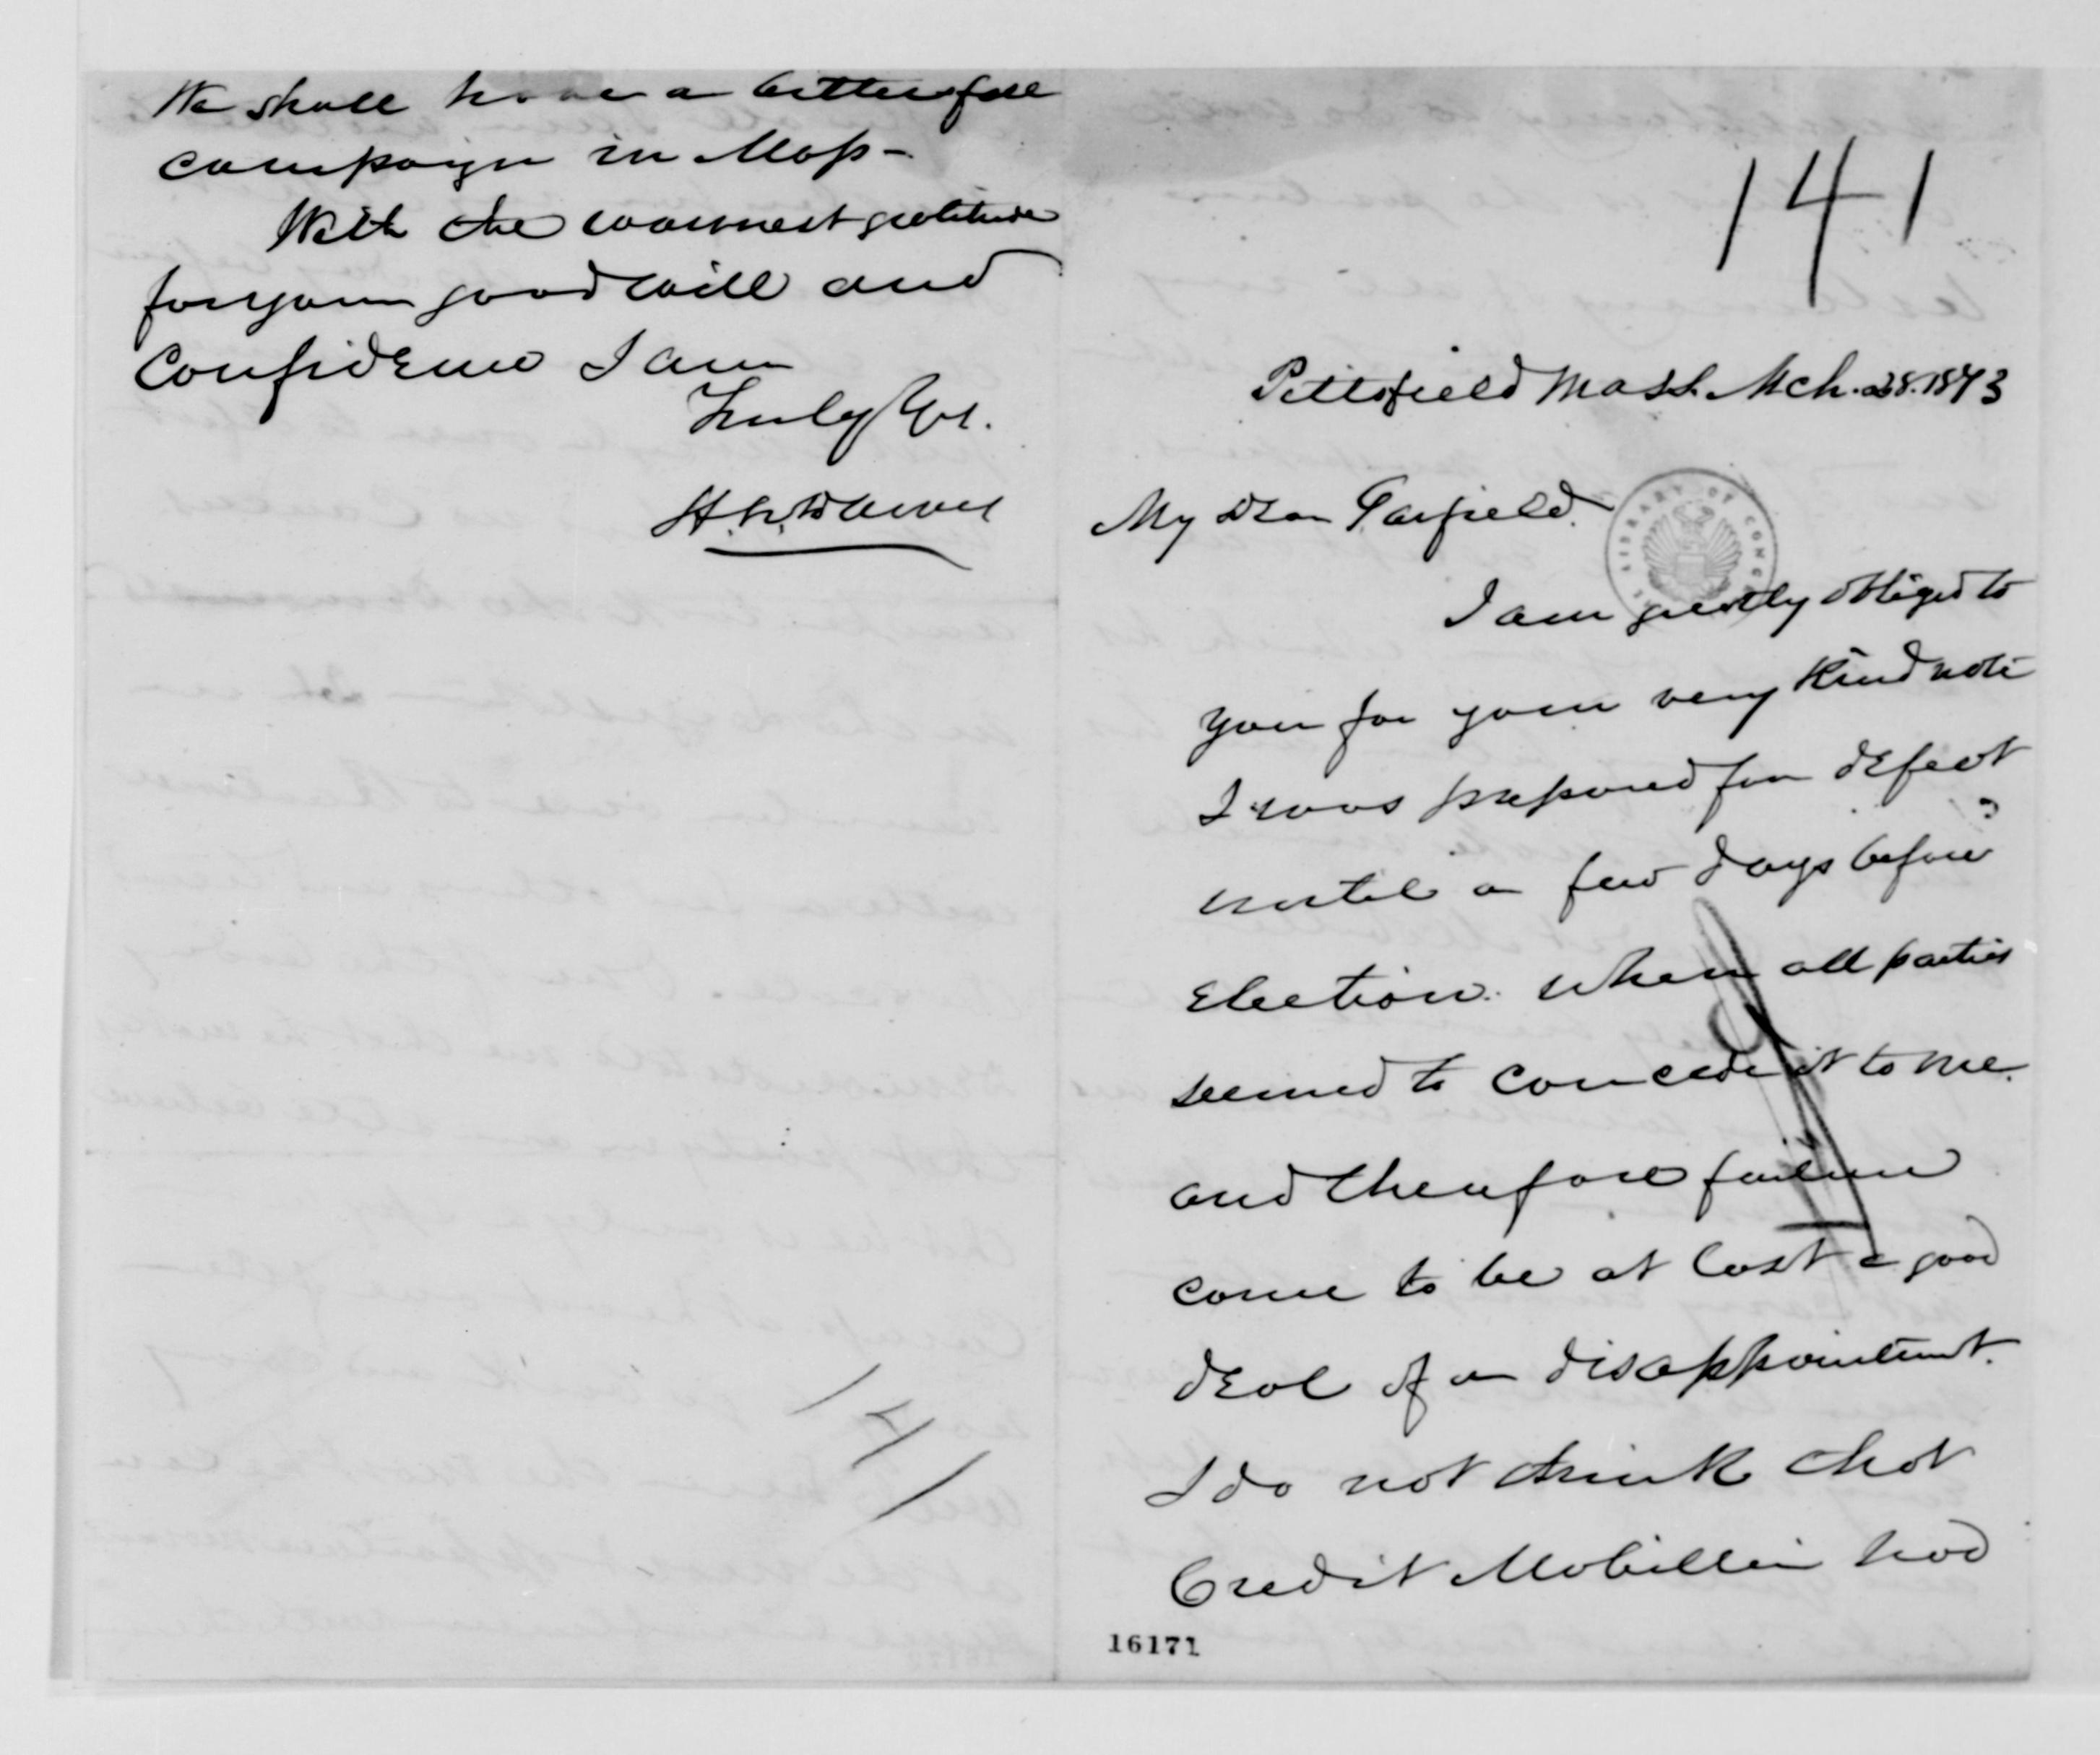 We shall have a bitter fall
campaign in Mass-
With the warmest gratitude
for your good will and
confidence I am
Truly Yrs.
H. L. Dawes
141
141
Pittsfield Mass. Mch. 28. 1873
My Dear Garfield.
THE LIBRARY OF CONGRESS
I am greatly obliged to
you for your very kind note
I was prepared for defeat
until a few days before
election. when all parties
seemed to concede it to me.
and therefore failure
come to be at last a good
deal of a disappointment.
I do not think that
Credit Mobillier had
16171